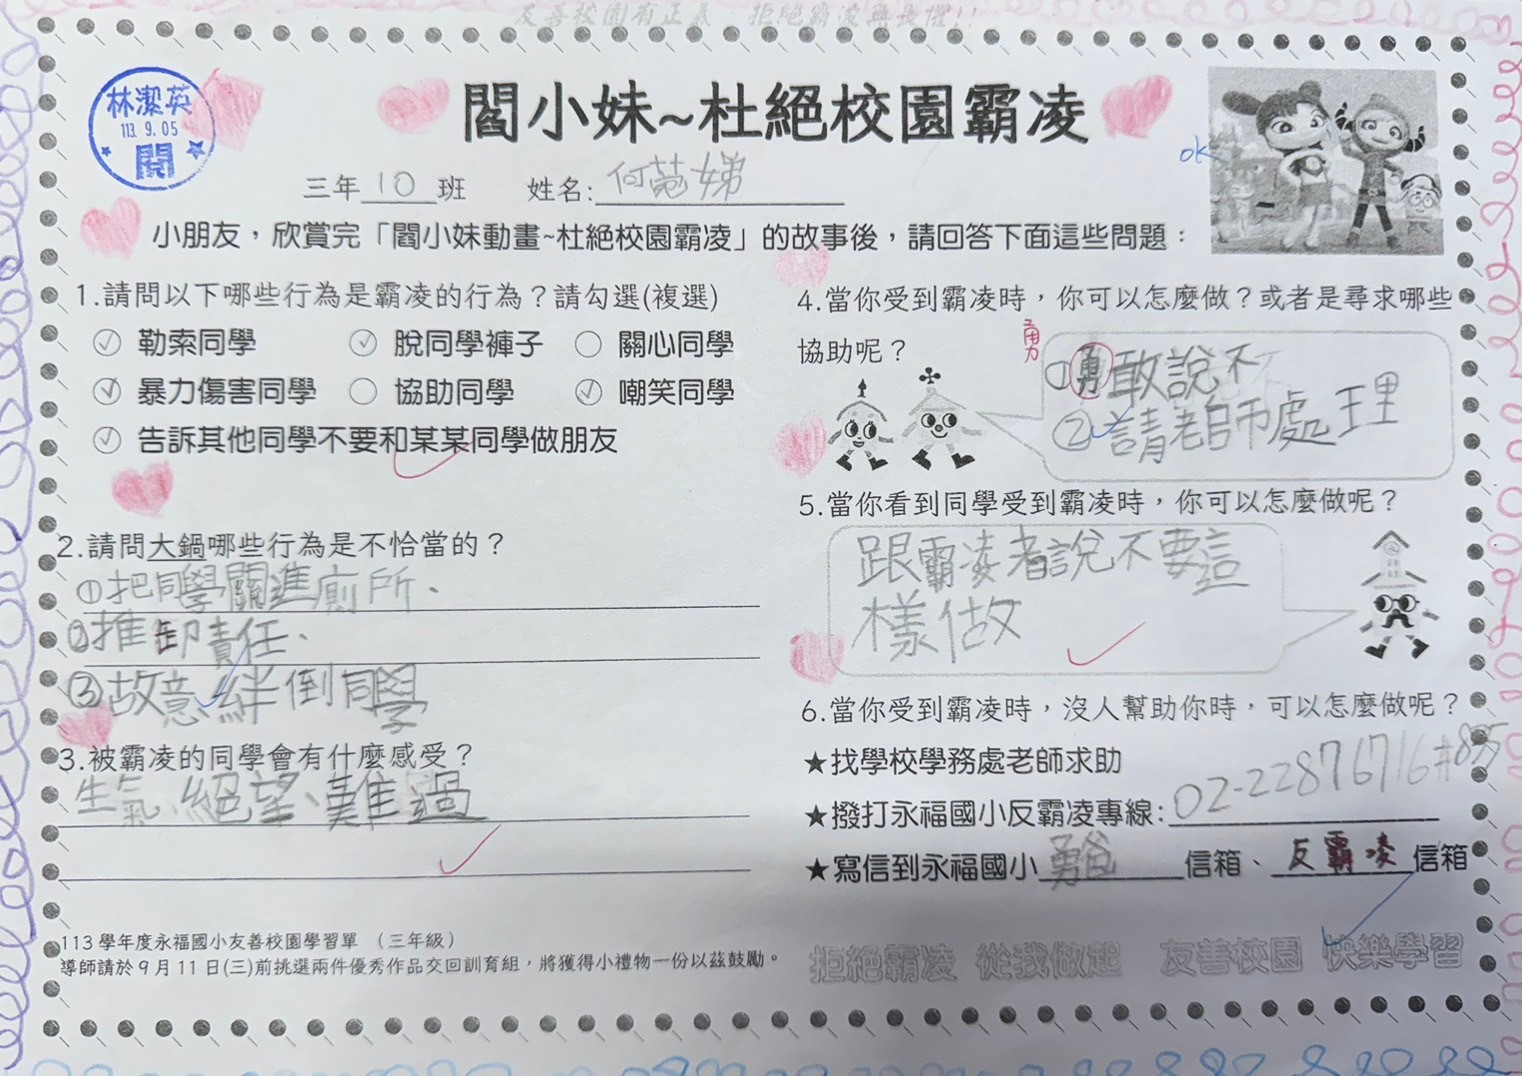 友善校園有正義 拒絕霸凌無畏懼!!
林潔英
113. 9. 05
閱
閻小妹~杜絕校園霸凌
ok
三年10班 姓名:何菀娣
小朋友，欣賞完「閻小妹動畫~杜絕校園霸凌」的故事後，請回答下面這些問題：
1.請問以下哪些行為是霸凌的行為？請勾選(複選)
✓ 勒索同學 ✓ 脫同學褲子 ○ 關心同學
✓ 暴力傷害同學 ○ 協助同學 ✓ 嘲笑同學
✓ 告訴其他同學不要和某某同學做朋友
2.請問大鍋哪些行為是不恰當的？
①把同學關進廁所、
②推卸責任、
③故意絆倒同學
3.被霸凌的同學會有什麼感受？
生氣、絕望、難過
4.當你受到霸凌時，你可以怎麼做？或者是尋求哪些
協助呢？
勇
①勇敢說不
②請老師處理
5.當你看到同學受到霸凌時，你可以怎麼做呢？
跟霸凌者說不要這
樣做
6.當你受到霸凌時，沒人幫助你時，可以怎麼做呢？
★找學校學務處老師求助
★撥打永福國小反霸凌專線:02-22876716#835
★寫信到永福國小勇爸信箱、反霸凌信箱
113學年度永福國小友善校園學習單 （三年級）
導師請於9月11日(三)前挑選兩件優秀作品交回訓育組，將獲得小禮物一份以茲鼓勵。
拒絕霸凌 從我做起 友善校園 快樂學習